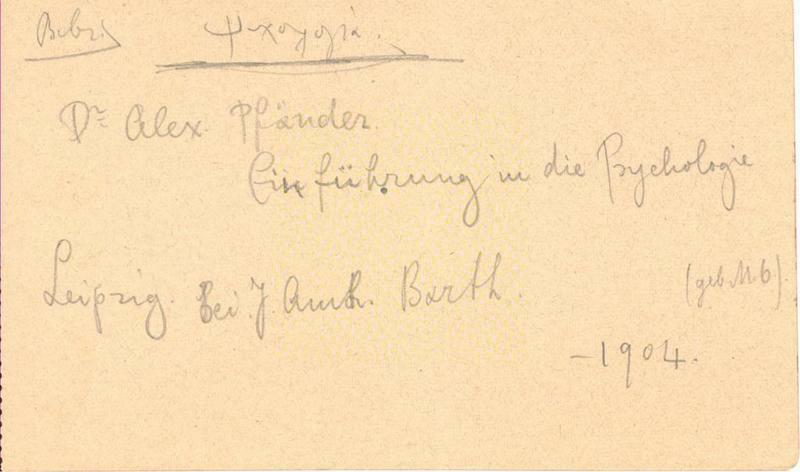 Ψυχολογία.
Dr Alex. Pfänder.
Einführung in die Psychologie
Leipzig. Bei J. Amb. Barth. (geb. M. 6).
-1904.